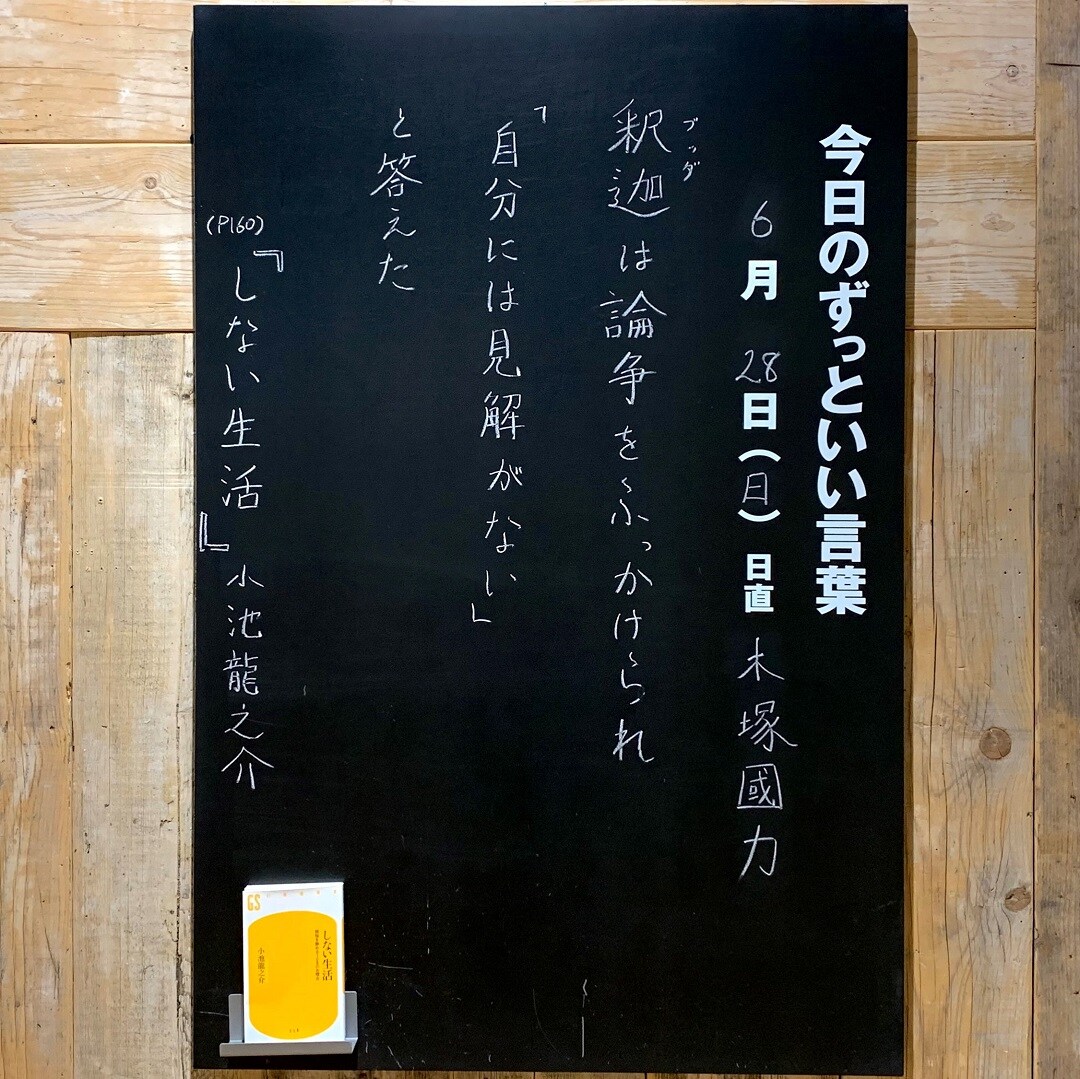 今日のずっといい言葉
6月28日(日) 日直 木塚國力
ブッダ
釈迦は論争をふっかけられ
「自分には見解がない」
と答えた
(P160)
『しない生活』小池龍之介
GS
しない生活
小池龍之介